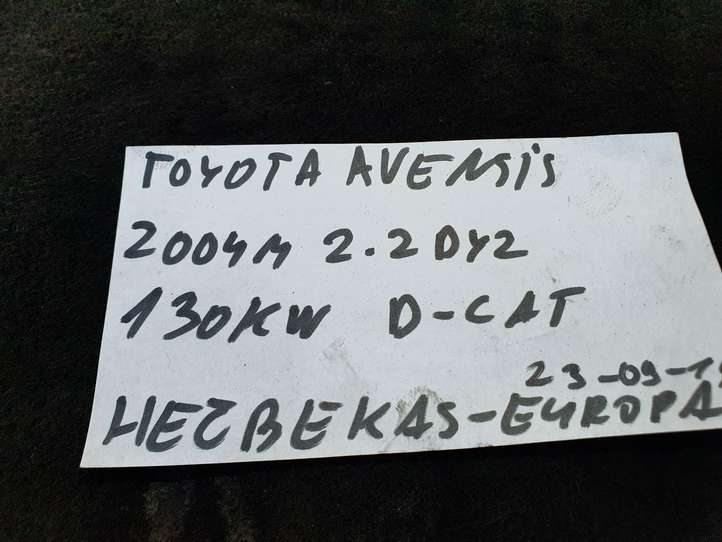 TOYOTA AVENSIS
2004M 2.2 DYZ
130KW D-CAT
23-09-1
HEČBEKAS-EUROPA